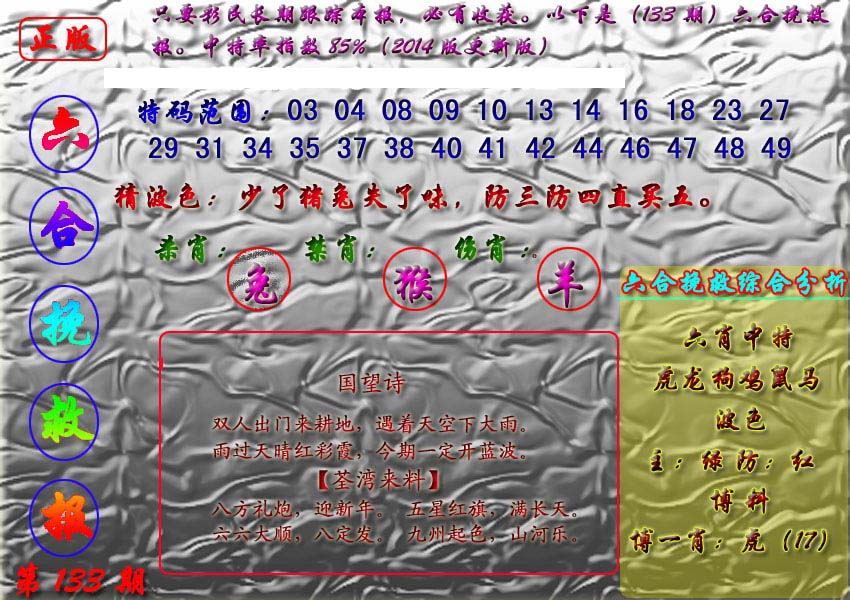 正版
只要彩民长期跟踪本报，必有收获。以下是（133期）六合挽救
报。中特率指数85%（2014版更新版）
六合挽救报
第133期
特码范围：03 04 08 09 10 13 14 16 18 23 27
29 31 34 35 37 38 40 41 42 44 46 47 48 49
猜波色：少了猪兔失了味，防三防四直买五。
杀肖：兔 禁肖：猴 伤肖：羊
国望诗
双人出门来耕地，遇着天空下大雨。
雨过天晴红彩霞，今期一定开蓝波。
【荃湾来料】
八方礼炮，迎新年。 五星红旗，满长天。
六六大顺，八定发。 九州起色，山河乐。
六合挽救综合分析
六肖中特
虎龙狗鸡鼠马
波色
主：绿防：红
博料
博一肖：虎（17）